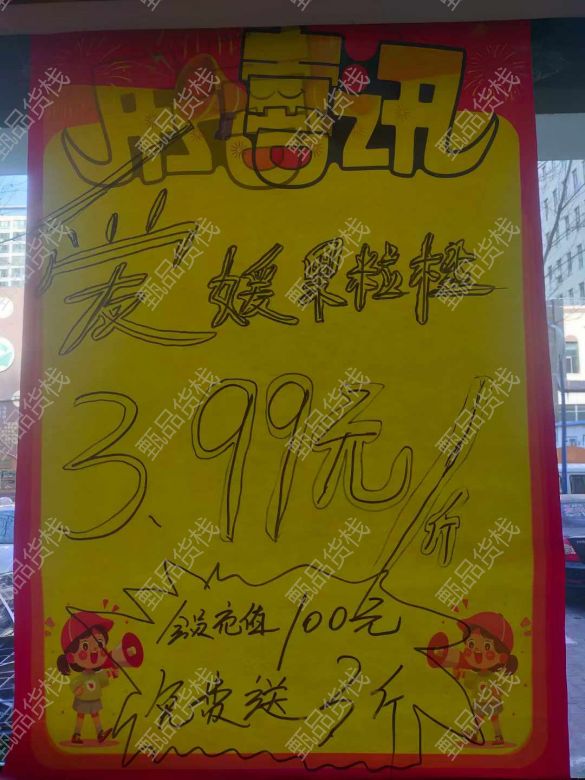 喜讯
爱媛果粒橙
3.99元/斤
会员充值100元
免费送3斤
甄品货栈